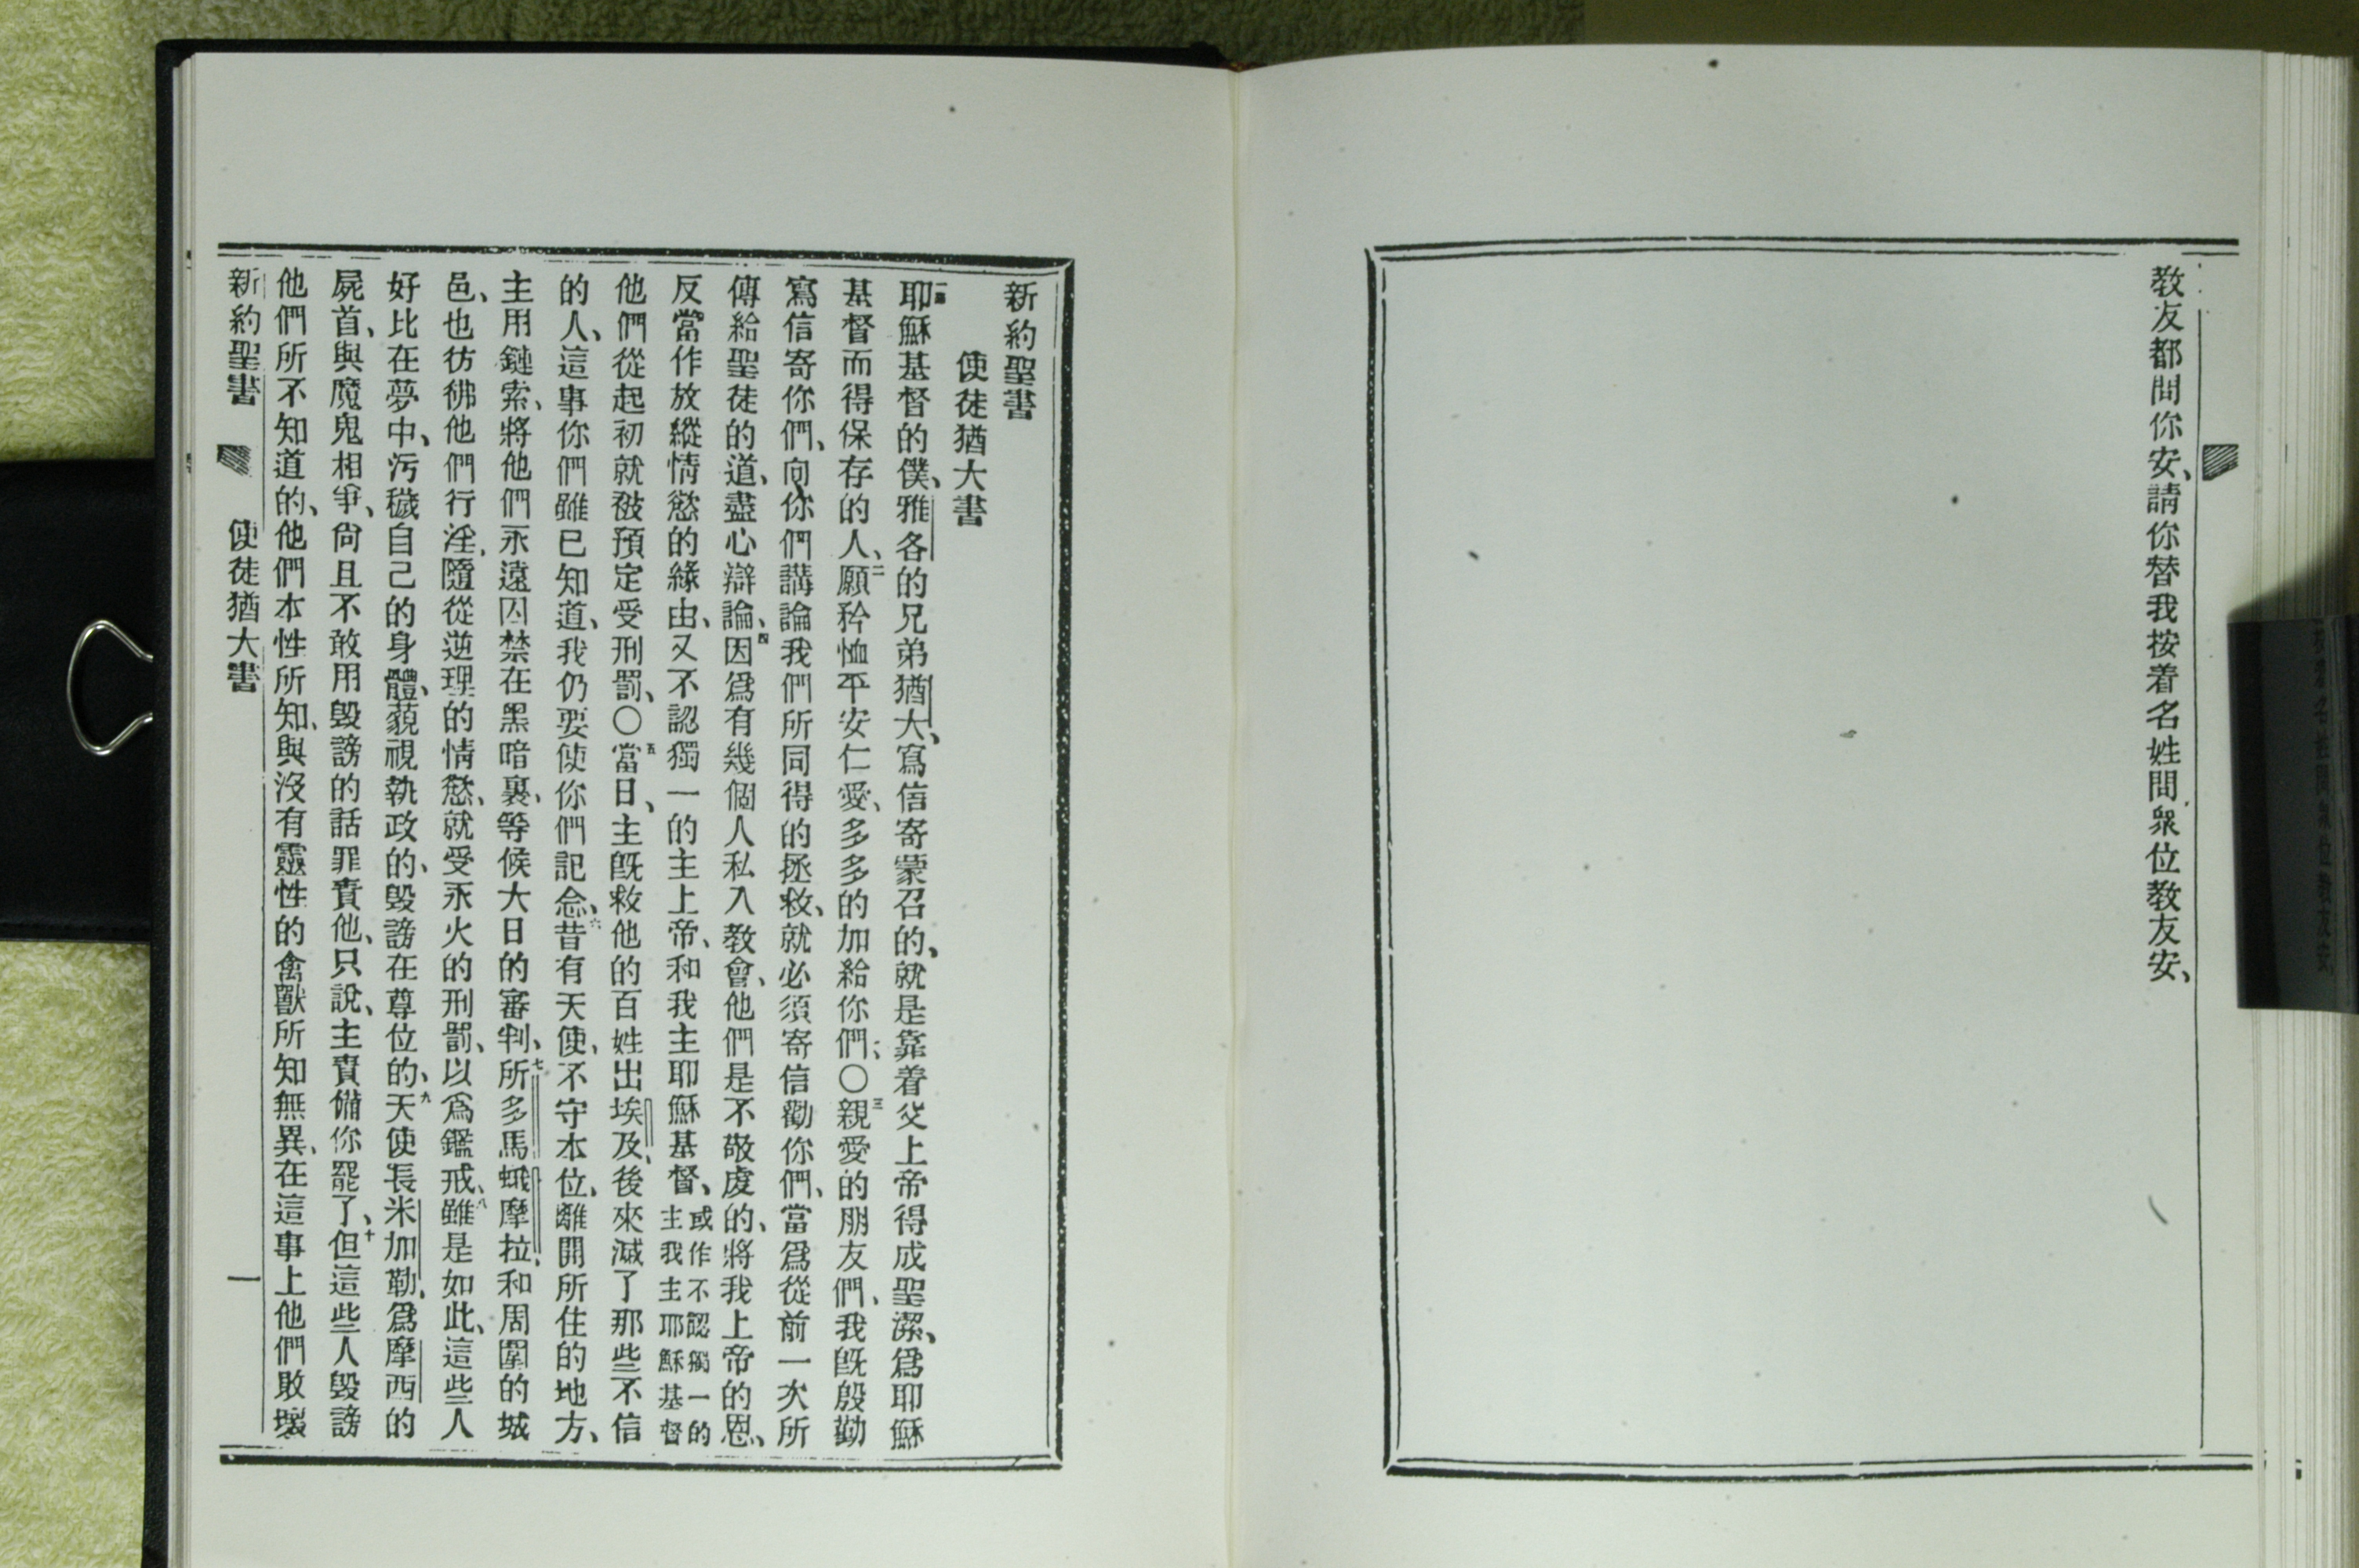 教友都問你安、請你替我按着名姓問衆位教友安、
新約聖書
使徒猶大書
耶穌基督的僕、雅各的兄弟猶大、寫信寄蒙召的、就是靠着父上帝得成聖潔、爲耶穌
基督而得保存的人、二願矜恤平安仁愛、多多的加給你們、〇三親愛的朋友們、我旣殷勤
寫信寄你們、向你們講論我們所同得的拯救、就必須寄信勸你們、當爲從前一次所
傳給聖徒的道、盡心辯論、四因爲有幾個人私入教會、他們是不敬虔的、將我上帝的恩、
反當作放縱情慾的緣由、又不認獨一的主上帝、和我主耶穌基督、或作不認獨一的主我主耶穌基督
他們從起初就被預定受刑罰、〇五當日、主旣救他的百姓出埃及、後來滅了那些不信
的人、這事你們雖已知道、我仍要使你們記念、六昔有天使、不守本位、離開所住的地方、
主用鏈索、將他們永遠囚禁在黑暗裏、等候大日的審判、七所多馬蛾摩拉、和周圍的城
邑、也彷彿他們行淫、隨從逆理的情慾、就受永火的刑罰、以爲鑑戒、八雖是如此、這些人
好比在夢中、污穢自己的身體、藐視執政的、毀謗在尊位的、九天使長米加勒、爲摩西的
屍首、與魔鬼相爭、尙且不敢用毀謗的話罪責他、只說、主責備你罷了、十但這些人毀謗
他們所不知道的、他們本性所知、與沒有靈性的禽獸所知無異、在這事上他們敗壞
新約聖書 使徒猶大書 一